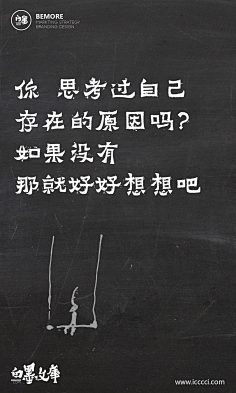 BEMORE
MARKTING STRATEGY
BRANDING DESIGN
你 思考过自己
存在的原因吗?
如果没有
那就好好想想吧
白墨文库
www.icccci.com